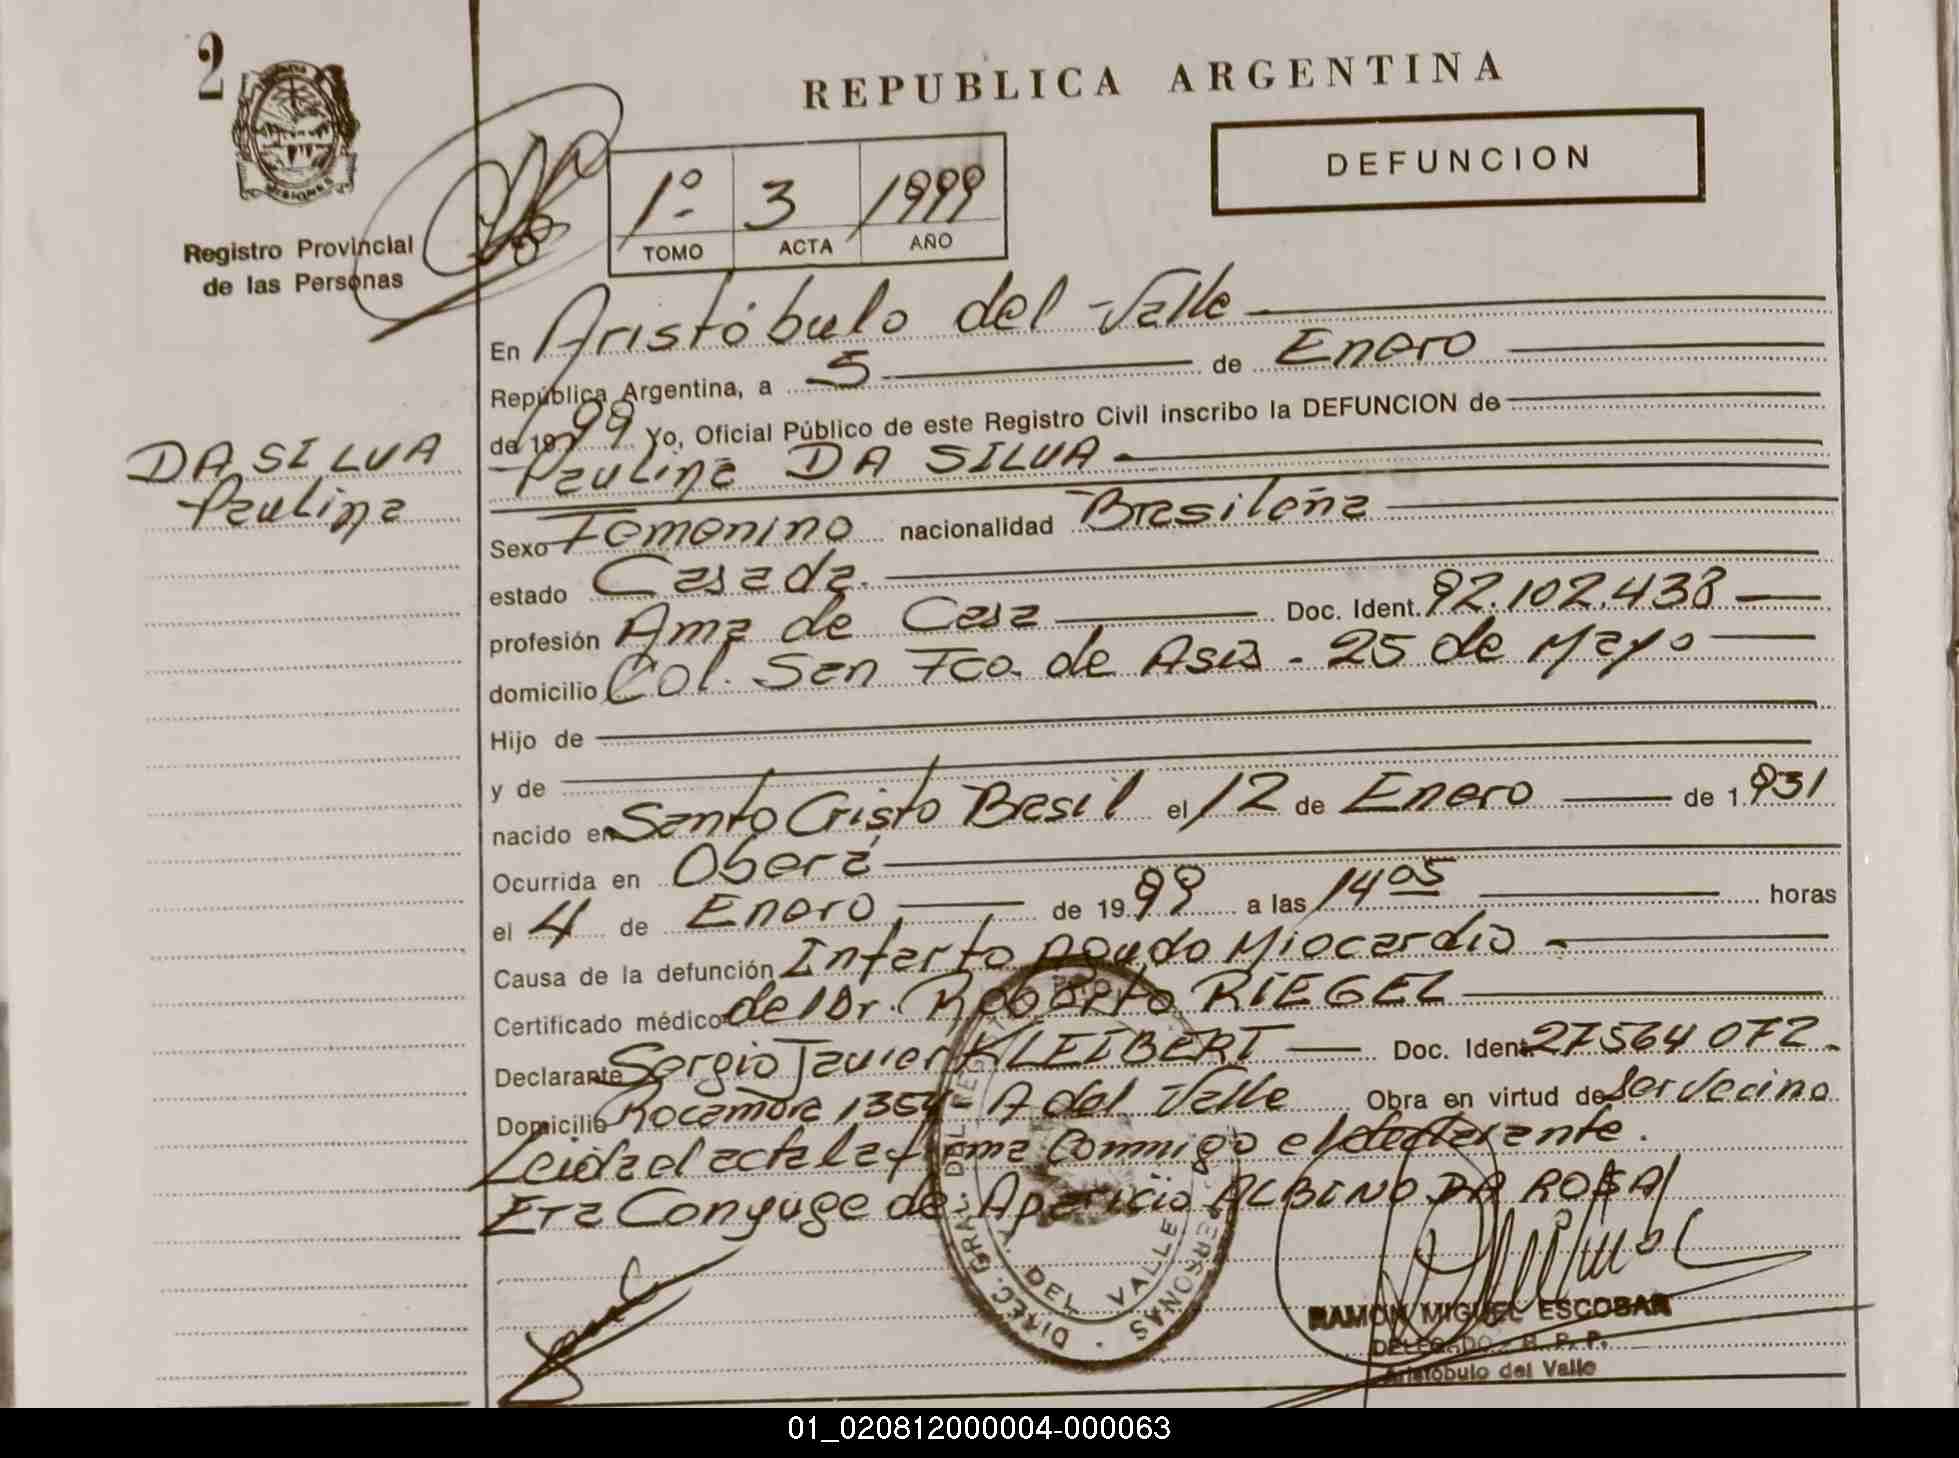 2
REPUBLICA ARGENTINA
DEFUNCION
MISIONES
Registro Provincial
de las Personas
1º 3 1999
TOMO ACTA AÑO
En Aristóbulo del Valle
República Argentina, a 5 de Enero
de 1999 Yo, Oficial Público de este Registro Civil inscribo la DEFUNCION de
Paulina DA SILVA
DA SILVA
Paulina
Sexo Femenino nacionalidad Brasileña
estado Casada
profesión Ama de Casa Doc. Ident. 92.102.438
domicilio Col. San Fco. de Asis - 25 de Mayo
Hijo de
y de
nacido en Santo Cristo Brasil el 12 de Enero de 1931
Ocurrida en Oberá
el 4 de Enero de 1999 a las 14 05 horas
Causa de la defunción Infarto Agudo Miocardio
Certificado médico del Dr. Roberto RIEGEL
Declarante Sergio Javier KLEIBERT Doc. Ident. 27564072
Domicilio Rocamora 1354 - A del Valle Obra en virtud de Ser Vecino
Leida el acta la firma Conmigo el declarante.
Era Conyuge de Aparicio ALBINO DA ROSA
DIREC. GRAL. DEL REGISTRO PERSONAS
DEL VALLE
RAMON MIGUEL ESCOBAR
DELEGADO R. P. P.
Aristóbulo del Valle
01_020812000004-000063